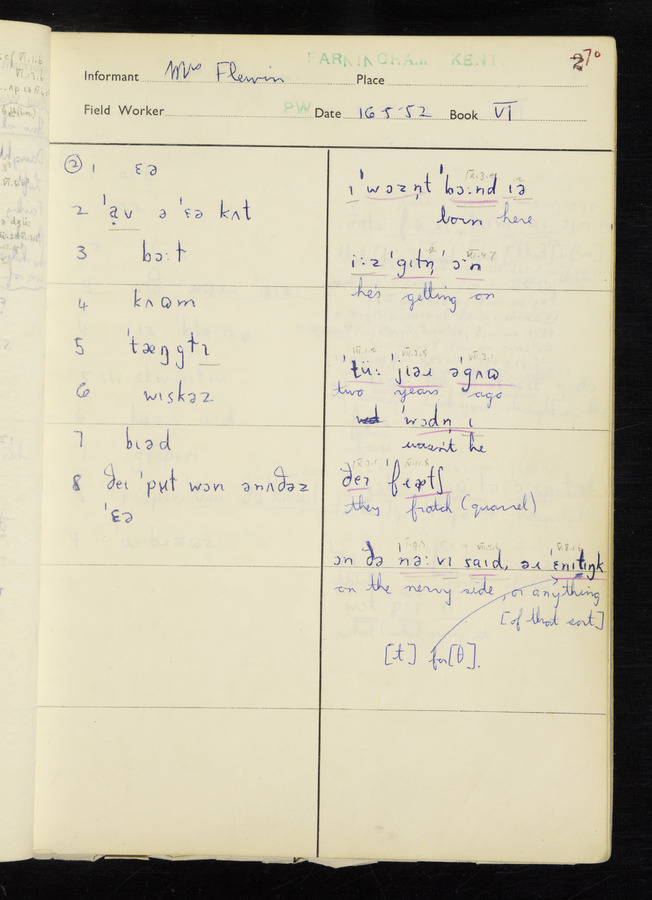 FARNINGHAM KENT.
270
Informant Mrs Flewin Place
Field Worker PW Date 16·5·52 Book VI
② 1 ɛə
2 ˈạv ə ˈɛə kʌt
3 bɔːt
4 kʌɷm
5 ˈtæŋgtɪ
6 wɪskəz
7 bɪəd
8 ðeɪ ˈpʊt wɔn ənʌðəz
ˈɛə
ɪ ˈwɔzn̩t ˈbɔːnd ɪə
born here
iːz ˈgɪtn̩ ˈɔn
he's getting on
ˈtüː ˈjɪəɪ əˈgʌɷ
two years ago
ˈwɔdn̩ ɪ
wasn't he
ðeɪ ˈfɹætʃ
they fratch (quarrel)
ɔn ðə ˈnəːvɪ saɪd, əɹ ˈɛnɪtɪŋk
on the nervy side, or anything
[of that sort]
[t] for [θ].